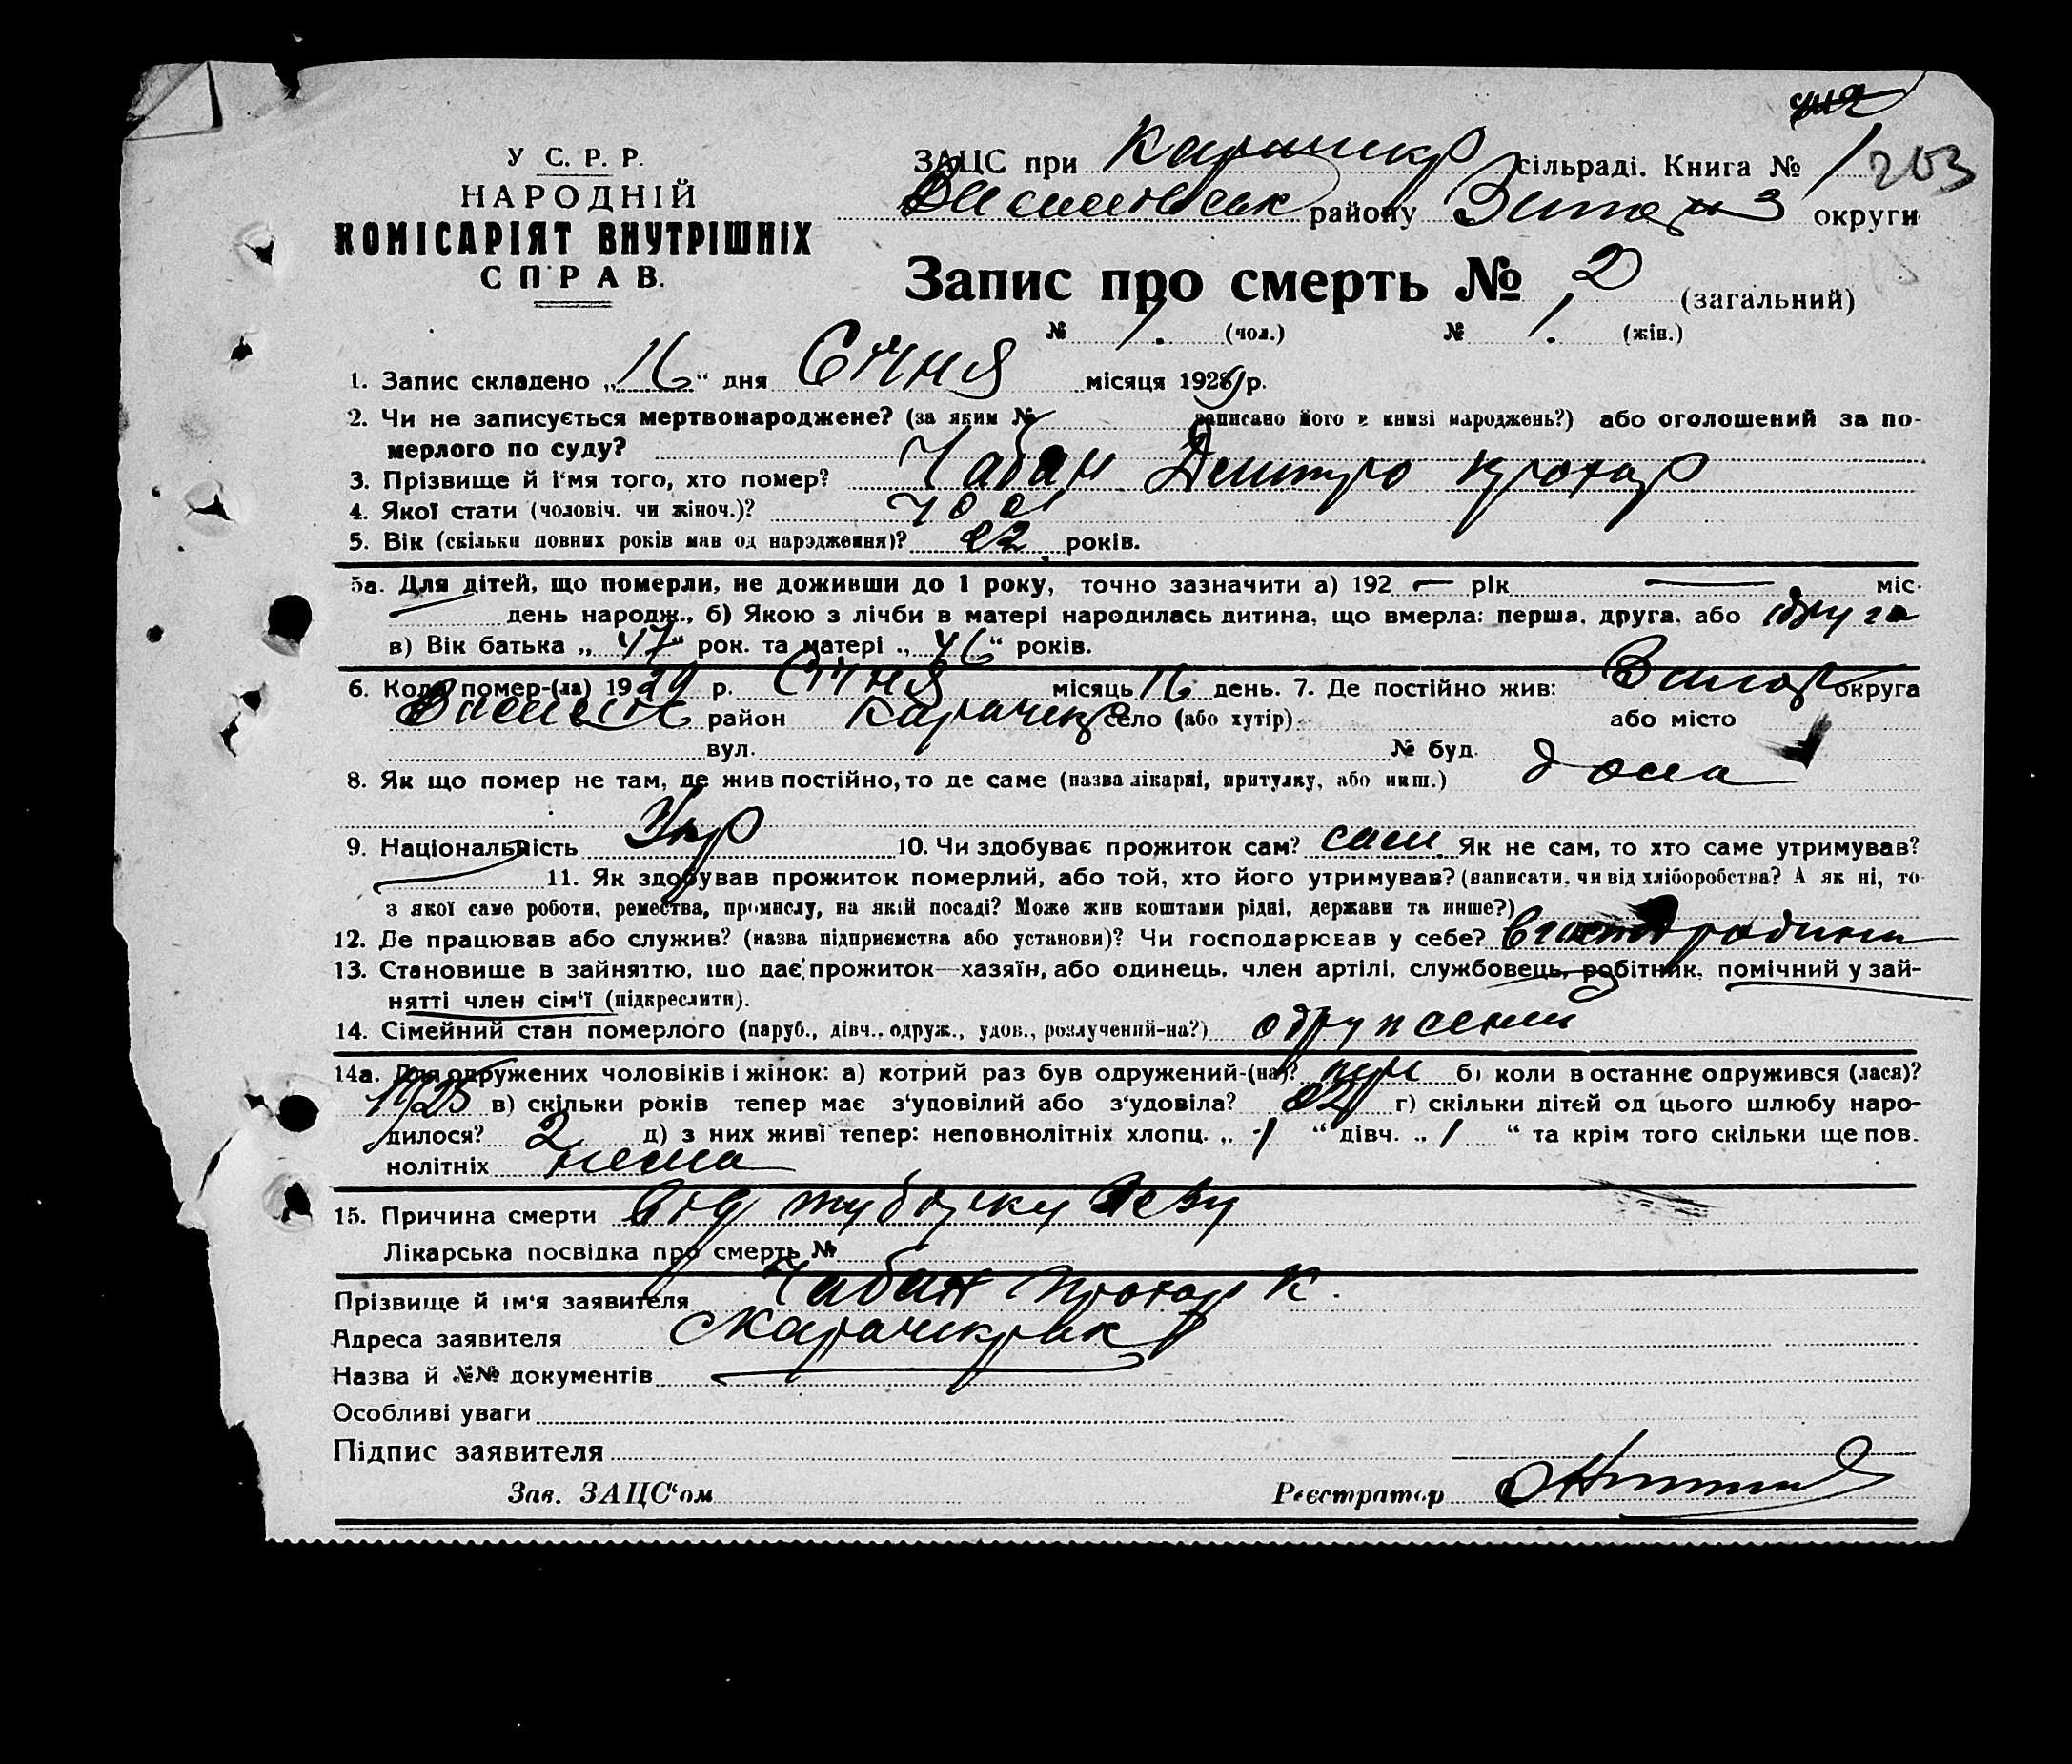 У С. Р. Р.
НАРОДНІЙ
КОМІСАРІЯТ ВНУТРІШНІХ
СПРАВ.
ЗАЦС при сільраді. Книга № 1 203
району округи
Запис про смерть № 2 (загальний)
№ 1. (чол.) № 1. (жін.)
1. Запис складено „16“ дня Січня місяця 1929 р.
2. Чи не записується мертвонароджене? (за яким № записано його в книзі народжень?) або оголошений за по-
мерлого по суду?
3. Прізвище й ім'я того, хто помер? Чабан Дмитро Прохор
4. Якої стати (чоловіч. чи жіноч.)? чол
5. Вік (скільки повних років мав од народження)? 22 років.
5а. Для дітей, що померли, не доживши до 1 року, точно зазначити а) 192 — рік — міс.
день народж., б) Якою з лічби в матері народилась дитина, що вмерла: перша, друга, або друга
в) Вік батька „47“ рок. та матері „46“ років.
6. Коли помер-(ла) 1929 р. Січня місяць 16 день. 7. Де постійно жив: округа
район Карачекр село (або хутір) або місто
вул. № буд.
8. Як що помер не там, де жив постійно, то де саме (назва лікарні, притулку, або инш.) дома
9. Національність Укр 10. Чи здобуває прожиток сам? сам. Як не сам, то хто саме утримував?
11. Як здобував прожиток померлий, або той, хто його утримував? (написати, чи від хліборобства? А як ні, то
з якої саме роботи, ремества, промислу, на якій посаді? Може жив коштами рідні, держави та инше?)
12. Де працював або служив? (назва підприємства або установи)? Чи господарював у себе? в родини
13. Становище в зайняттю, що дає прожиток—хазяїн, або одинець, член артілі, службовець, робітник, помічний у зай-
нятті член сім'ї (підкреслити).
14. Сімейний стан померлого (паруб., дівч., одруж., удов., розлучений-на?) одружений
14а. Для одружених чоловіків і жінок: а) котрий раз був одружений-(на)? пер б) коли востаннє одружився (лася)?
1925 в) скільки років тепер має з'уповілий або з'удовіла? 22 г) скільки дітей од цього шлюбу наро-
дилося? 2 д) з них живі тепер: неповнолітніх хлопц. „1“ дівч. „1“ та крім того скільки ще пов.
нолітніх нема
15. Причина смерти від
Лікарська посвідка про смерть №
Прізвище й ім'я заявителя Чабан Прохор К.
Адреса заявителя с Карачекрак
Назва й №№ документів
Особливі уваги
Підпис заявителя
Зав. ЗАЦС'ом Реєстратор